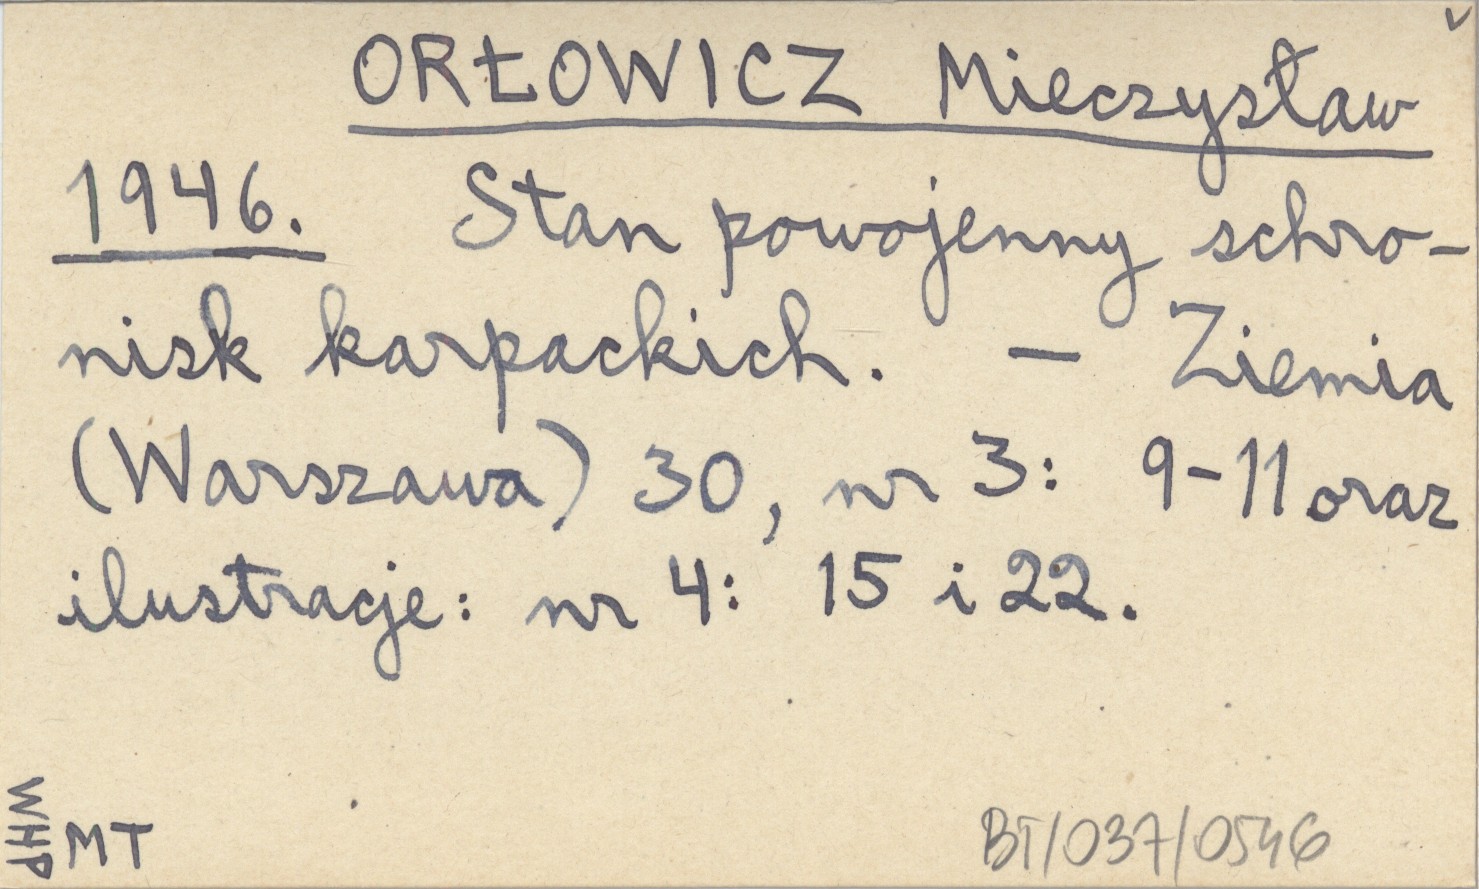 v
ORŁOWICZ Mieczysław
1946. Stan powojenny schro-
nisk karpackich. — Ziemia
(Warszawa) 30, nr 3: 9-11 oraz
ilustracje: nr 4: 15 i 22.
WHP
MT
BT/037/0546